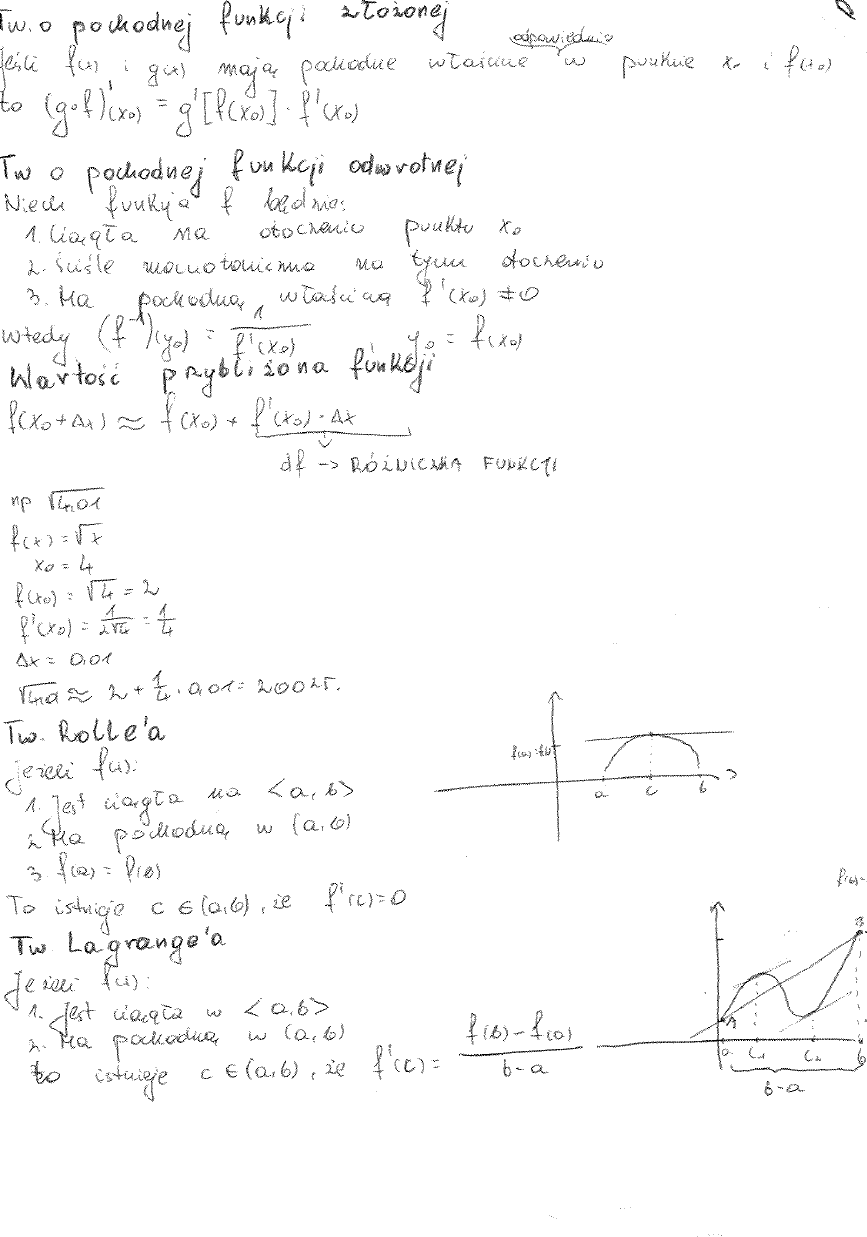 Tw. o pochodnej funkcji złożonej
odpowiednio
Jeśli f(x) i g(x) mają pochodne właściwe w punkcie x₀ i f(x₀)
to (g∘f)'(x₀) = g'[f(x₀)] · f'(x₀)
Tw o pochodnej funkcji odwrotnej
Niech funkcja f będzie:
1. Ciągła na otoczeniu punktu x₀
2. Ściśle monotoniczna na tym otoczeniu
3. Ma pochodną właściwą f'(x₀) ≠ 0
wtedy (f⁻¹)'(y₀) = 1/f'(x₀) y₀ = f(x₀)
Wartość przybliżona funkcji
f(x₀+Δx) ≈ f(x₀) + f'(x₀) · Δx
df → RÓŻNICZKA FUNKCJI
np √4,01
f(x) = √x
x₀ = 4
f(x₀) = √4 = 2
f'(x₀) = 1/2√4 = 1/4
Δx = 0,01
√4,01 ≈ 2 + 1/4 · 0,01 = 2,0025.
Tw. Rolle'a
Jeżeli f(x):
1. Jest ciągła na <a,b>
2. Ma pochodną w (a,b)
3. f(a) = f(b)
To istnieje c ∈ (a,b), że f'(c) = 0
f(a)=f(b)
a c b
Tw. Lagrange'a
Jeżeli f(x):
1. Jest ciągła w <a,b>
2. Ma pochodną w (a,b)
to istnieje c ∈ (a,b), że f'(c) = f(b) - f(a) / b - a
f(b)-
B
A
a c₁ c₂ b
b-a